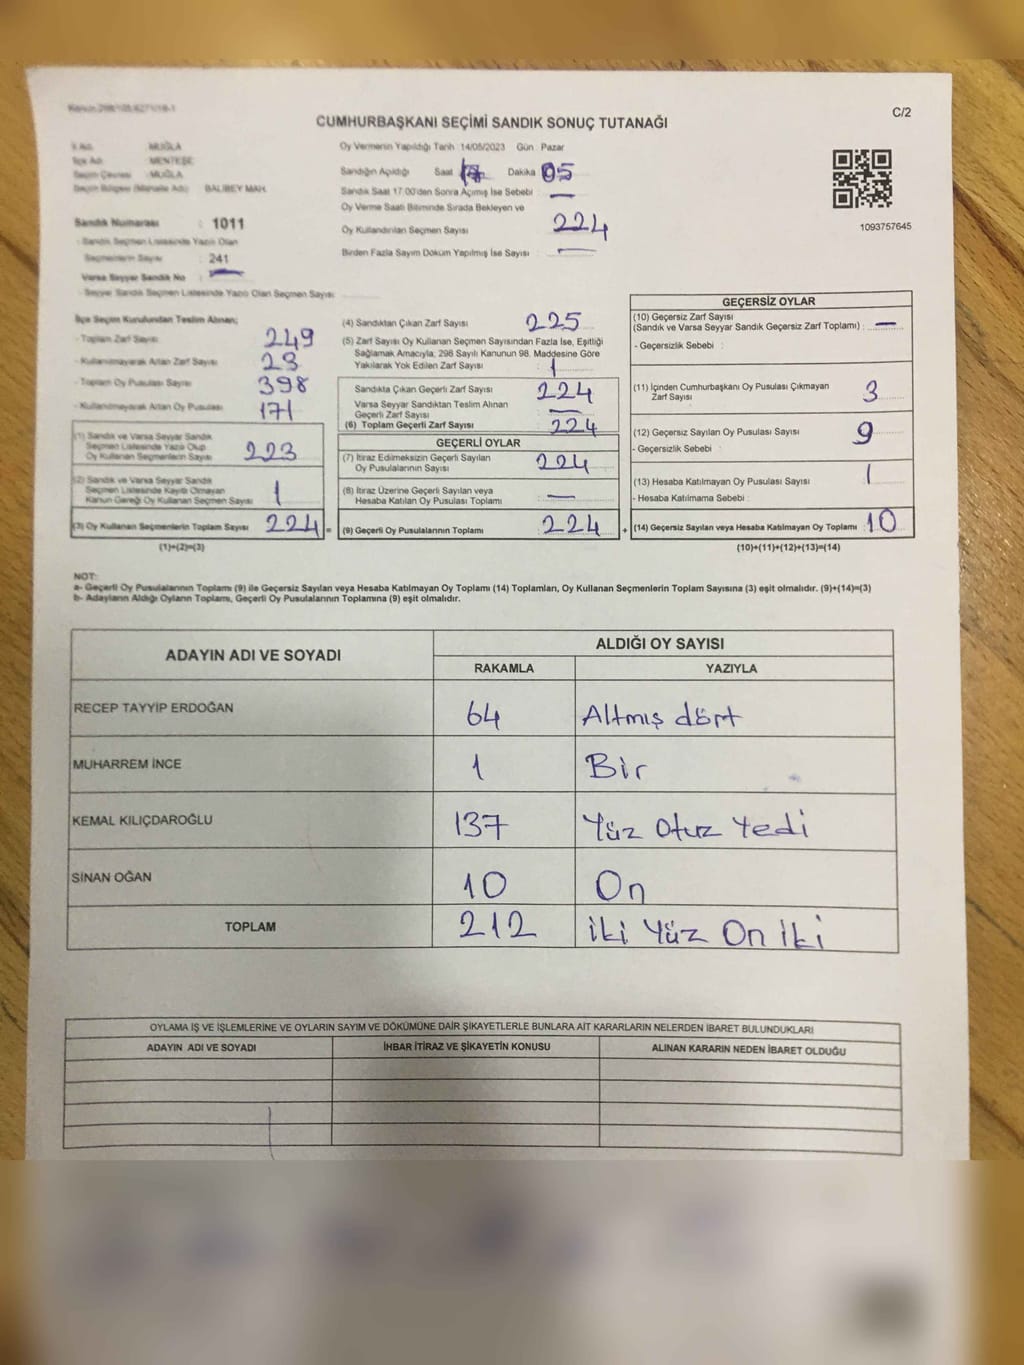 C/2
CUMHURBAŞKANI SEÇİMİ SANDIK SONUÇ TUTANAĞI
İl Adı : MUĞLA
İlçe Adı : MENTEŞE
Seçim Çevresi : MUĞLA
Seçim Bölgesi (Mahalle Adı) : BALIBEY MAH.
Sandık Numarası : 1011
- Sandık Seçmen Listesinde Yazılı Olan
Seçmenlerin Sayısı : 241
Varsa Seyyar Sandık No : —
- Seyyar Sandık Seçmen Listesinde Yazılı Olan Seçmen Sayısı
Oy Vermenin Yapıldığı Tarih :14/05/2023 Gün : Pazar
Sandığın Açıldığı Saat 17 Dakika : 05
Sandık Saat 17:00'den Sonra Açımış İse Sebebi : —
Oy Verme Saati Bitiminde Sırada Bekleyen ve
Oy Kullandırılan Seçmen Sayısı : 224
Birden Fazla Sayım Döküm Yapılmış İse Sayısı : —
1093757645
İlçe Seçim Kurulundan Teslim Alınan;
- Toplam Zarf Sayısı : 249
- Kullanılmayarak Artan Zarf Sayısı : 23
- Toplam Oy Pusulası Sayısı : 398
- Kullanılmayarak Artan Oy Pusulası : 171
(1) Sandık ve Varsa Seyyar Sandık
Seçmen Listesinde Yazılı Olup
Oy Kullanan Seçmenlerin Sayısı : 223
(2) Sandık ve Varsa Seyyar Sandık
Seçmen Listesinde Kayıtlı Olmayan
Kanun Gereği Oy Kullanan Seçmen Sayısı : 1
(3) Oy Kullanan Seçmenlerin Toplam Sayısı : 224 =
(1)+(2)=(3)
(4) Sandıktan Çıkan Zarf Sayısı : 225
(5) Zarf Sayısı Oy Kullanan Seçmen Sayısından Fazla İse, Eşitliği
Sağlamak Amacıyla, 298 Sayılı Kanunun 98. Maddesine Göre
Yakılarak Yok Edilen Zarf Sayısı : 1
Sandıkta Çıkan Geçerli Zarf Sayısı : 224
Varsa Seyyar Sandıktan Teslim Alınan
Geçerli Zarf Sayısı : —
(6) Toplam Geçerli Zarf Sayısı : 224
GEÇERLİ OYLAR
(7) İtiraz Edilmeksizin Geçerli Sayılan
Oy Pusulalarının Sayısı : 224
(8) İtiraz Üzerine Geçerli Sayılan veya
Hesaba Katılan Oy Pusulası Toplamı : —
(9) Geçerli Oy Pusulalarının Toplamı : 224 +
GEÇERSİZ OYLAR
(10) Geçersiz Zarf Sayısı
(Sandık ve Varsa Seyyar Sandık Geçersiz Zarf Toplamı) : —
- Geçersizlik Sebebi :
(11) İçinden Cumhurbaşkanı Oy Pusulası Çıkmayan
Zarf Sayısı : 3
(12) Geçersiz Sayılan Oy Pusulası Sayısı : 9
- Geçersizlik Sebebi :
(13) Hesaba Katılmayan Oy Pusulası Sayısı : 1
- Hesaba Katılmama Sebebi :
(14) Geçersiz Sayılan veya Hesaba Katılmayan Oy Toplamı : 10
(10)+(11)+(12)+(13)=(14)
NOT:
a- Geçerli Oy Pusulalarının Toplamı (9) ile Geçersiz Sayılan veya Hesaba Katılmayan Oy Toplamı (14) Toplamları, Oy Kullanan Seçmenlerin Toplam Sayısına (3) eşit olmalıdır. (9)+(14)=(3)
b- Adayların Aldığı Oyların Toplamı, Geçerli Oy Pusulalarının Toplamına (9) eşit olmalıdır.
ADAYIN ADI VE SOYADI ALDIĞI OY SAYISI
RAKAMLA YAZIYLA
RECEP TAYYİP ERDOĞAN 64 Altmış dört
MUHARREM İNCE 1 Bir
KEMAL KILIÇDAROĞLU 137 Yüz Otuz Yedi
SİNAN OĞAN 10 On
TOPLAM 212 İki Yüz On İki
OYLAMA İŞ VE İŞLEMLERİNE VE OYLARIN SAYIM VE DÖKÜMÜNE DAİR ŞİKAYETLERLE BUNLARA AİT KARARLARIN NELERDEN İBARET BULUNDUKLARI
ADAYIN ADI VE SOYADI İHBAR İTİRAZ VE ŞİKAYETİN KONUSU ALINAN KARARIN NEDEN İBARET OLDUĞU